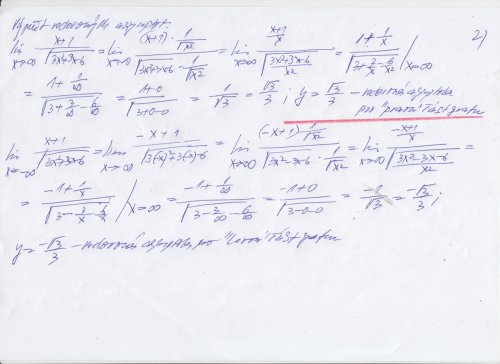 Výpočet vodorovných asymptot 2)
lim x→∞ (x+1)/√(3x²+3x-6) = lim x→∞ ((x+1)·1/√x²)/(√(3x²+3x-6)·1/√x²) = lim x→∞ ((x+1)/x)/√((3x²+3x-6)/x²) = (1+1/x)/√(3+3/x-6/x²) | x=∞
= (1+1/∞)/√(3+3/∞-6/∞) = (1+0)/√(3+0-0) = 1/√3 = √3/3 ; y = √3/3 - vodorovná asymptota
pro "pravou" část grafu
lim x→-∞ (x+1)/√(3x²+3x-6) = lim x→∞ (-x+1)/√(3(-x)²+3(-x)-6) = lim x→∞ ((-x+1)·1/√x²)/(√(3x²-3x-6)·1/√x²) = lim x→∞ ((-x+1)/x)/√((3x²-3x-6)/x²) =
= (-1+1/x)/√(3-3/x-6/x²) | x=∞ = (-1+1/∞)/√(3-3/∞-6/∞) = (-1+0)/√(3-0-0) = -1/√3 = -√3/3 ;
y = -√3/3 - vodorovná asymptota pro "levou" část grafu